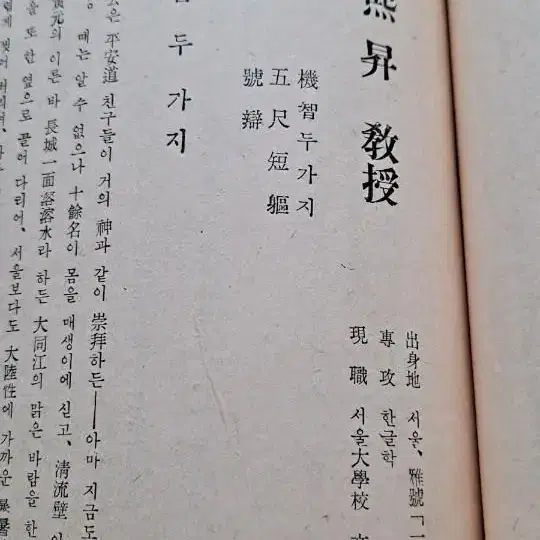 熙昇 教授
出身地 서울、雅號「一
專攻 한글학
現職 서울大學校
機智 두가지
五尺短軀
號辯
두가지
은 平安道 친구들이 거의 神과 같이 崇拜하든──아마 지금도
때는 알 수 없으나 十餘名이 몸을 매생이에 싣고、淸流壁
元의 이른 바 長城一面溶溶水라 하든 大同江의 맑은 바람을 한
을 또한 옆으로 끌어 다리어、서울보다도 大陸性에 가까운 暴暑